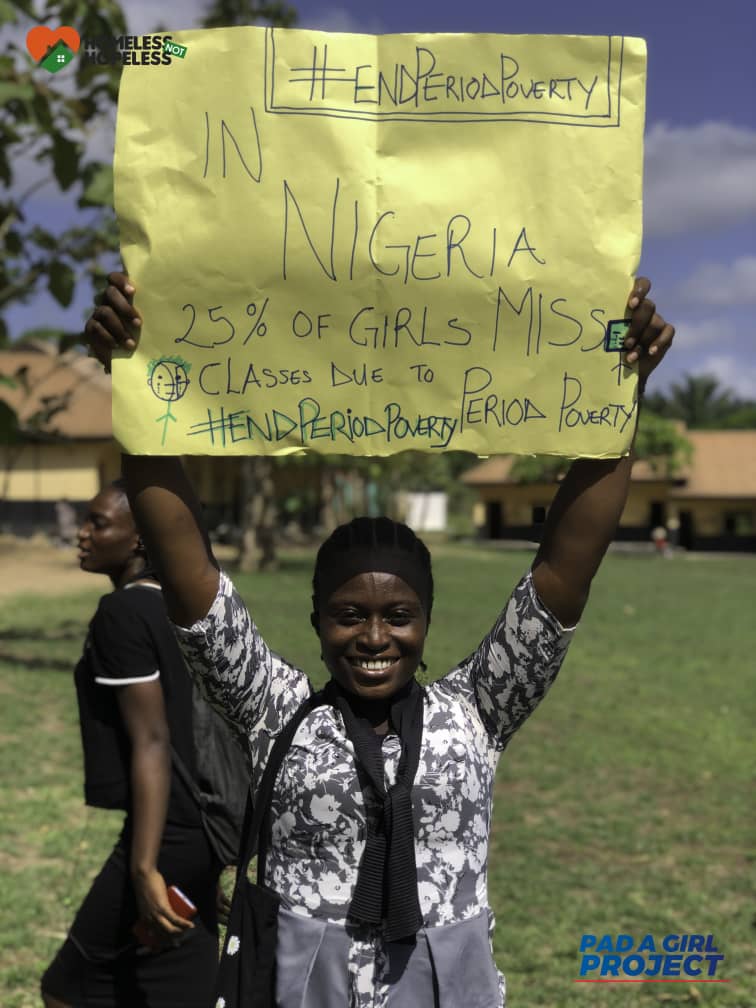 HOMELESS
NOT
HOPELESS
#ENDPERIODPOVERTY
IN
NIGERIA
25% OF GIRLS MISS
CLASSES DUE TO PERIOD POVERTY
#ENDPERIODPOVERTY
PAD A GIRL
PROJECT